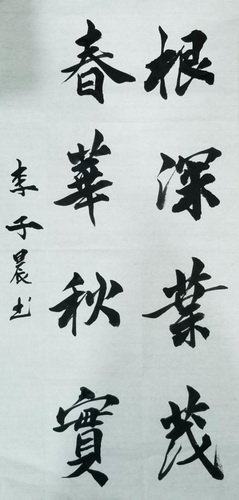 根深葉茂
春華秋實
李子晨书